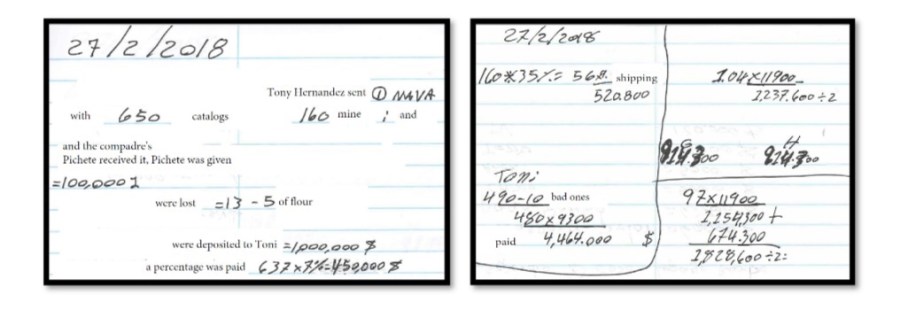 27/2/2018
Tony Hernandez sent ① NAVA
with 650 catalogs 160 mine ; and
and the compadre's
Pichete received it, Pichete was given
=100,000
were lost =13 - 5 of flour
were deposited to Toni =1,000,000 $
a percentage was paid 637x7%=450,000 $
27/2/2018
160*35%= shipping
520.800
1.04x11900
1,237.600÷2
Toni
490-10 bad ones
480x9300
paid 4,464.000 $
97x11900
1,154,300 +
674.300
1,828,600÷2=